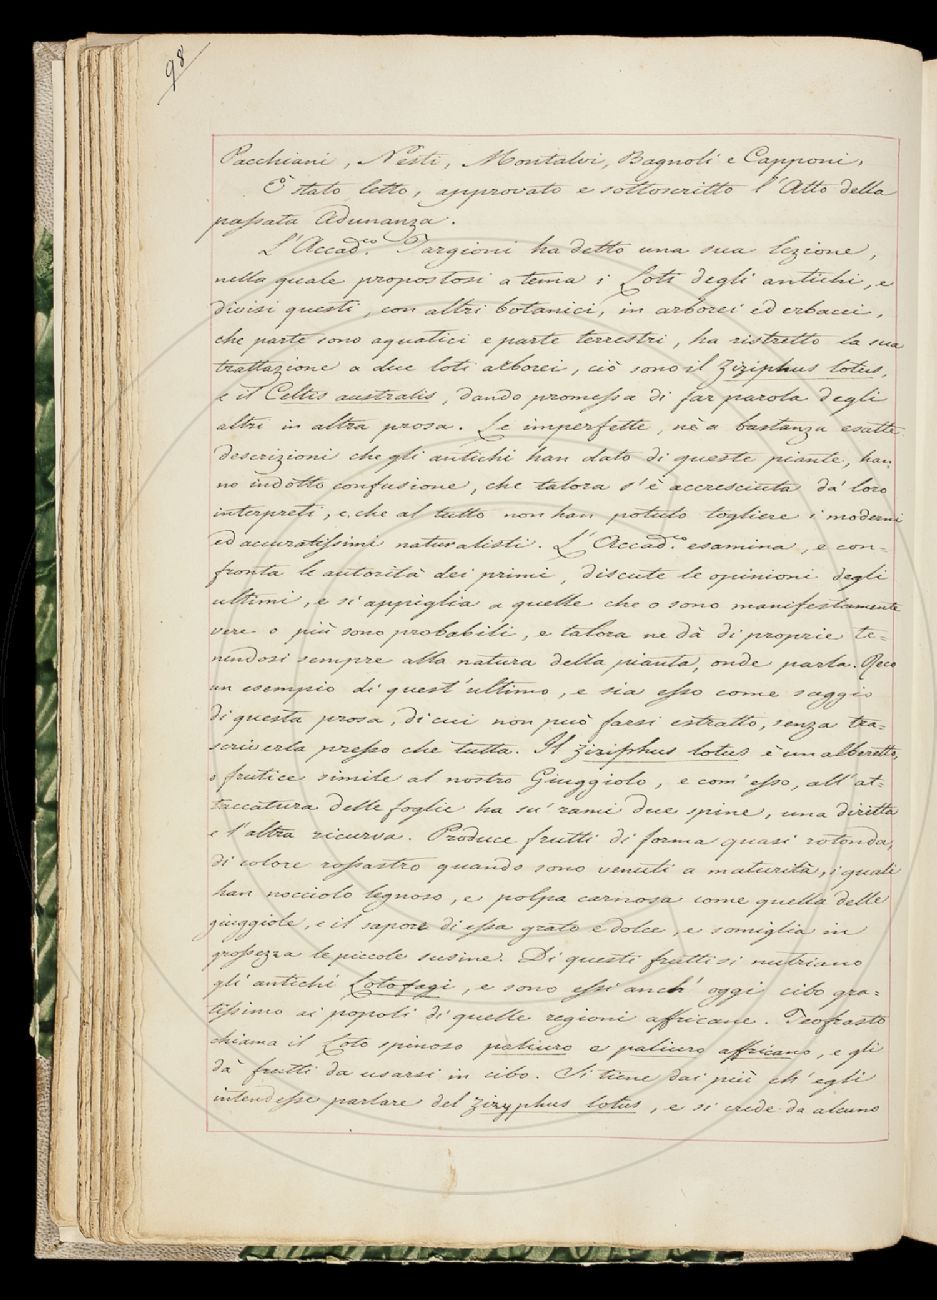 98
Pacchiani, Nesti, Montalvi, Bagnoli e Capponi,
È stato letto, approvato e sottoscritto l'Atto della
passata Adunanza.
L'Accad.co Targioni ha detto una sua lezione,
nella quale propostosi a tema i Loti degli antichi, e
divisi questi, con altri botanici, in arborei ed erbacei,
che parte sono aquatici e parte terrestri, ha ristretto la sua
trattazione a due loti arborei, ciò sono il Ziziphus lotus,
e il Celtis australis, dando promessa di far parola degli
altri in altra prosa. Le imperfette, nè a bastanza esatte
descrizioni che gli antichi han dato di queste piante, han-
no indotto confusione, che talora s'è accresciuta da' loro
interpreti, e che al tutto non han potuto togliere i moderni
ed accuratissimi naturalisti. L'Accad.co esamina, e con-
fronta le autorità dei primi, discute le opinioni degli
ultimi, e si appiglia a quelle che o sono manifestamente
vere o più sono probabili, e talora ne dà di proprie te-
nendosi sempre alla natura della pianta, onde parla. Reco
un esempio di quest'ultimo, e sia esso come saggio
di questa prosa, di cui non può farsi estratto, senza tra-
scriverla presso che tutta. Il Ziziphus lotus è un alberetto,
o frutice simile al nostro Giuggiolo, e com'esso, all'at-
taccatura delle foglie ha su' rami due spine, una diritta
e l'altra ricurva. Produce frutti di forma quasi rotonda,
di colore rossastro quando sono venuti a maturità, i quali
han nocciolo legnoso, e polpa carnosa come quella delle
giuggiole, e il sapore di essa grato e dolce, e somiglia in
grossezza le piccole susine. Di questi frutti si nutriano
gli antichi Lotofagi, e sono essi anch'oggi cibo gra-
tissimo ai popoli di quelle regioni affricane. Teofrasto
chiama il Loto spinoso paliuro e paliuro affricano, e gli
dà frutti da usarsi in cibo. Si tiene dai più ch'egli
intendesse parlare del Zizyphus lotus, e si crede da alcuno